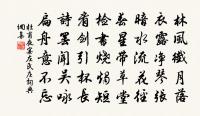 林風纖月落
衣露淨琴張
暗水流花徑
春星帶草堂
檢書燒燭短
看劍引杯長
詩罷聞吳咏
扁舟意不忘
杜甫夜宴左氏庄詞典
網集